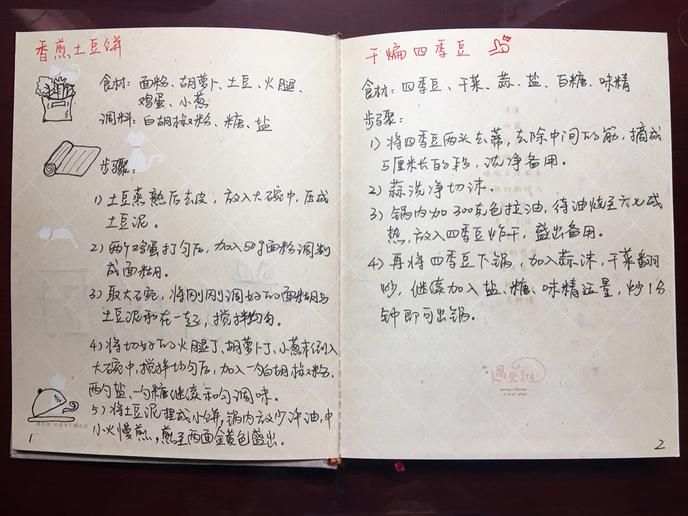 香煎土豆饼
食材：面粉、胡萝卜、土豆、火腿、
鸡蛋、小葱
调料：白胡椒粉、糖、盐
步骤：
1）土豆蒸熟后去皮，放入大碗中，压成
土豆泥。
2）两个鸡蛋打匀后，加入50g面粉调制
成面糊。
3）取大碗，将刚刚调好的面糊与
土豆泥和在一起，搅拌均匀。
4）将切好的火腿丁、胡萝卜丁、小葱末倒入
大碗中，搅拌均匀后，加入一勺白胡椒粉、
两勺盐、一勺糖继续和匀调味。
5）将土豆泥捏成小饼，锅内放少许油，中
小火慢煎，煎至两面金黄色盛出。
1
干煸四季豆
食材：四季豆、干菜、蒜、盐、白糖、味精
步骤：
1）将四季豆两头去蒂，去除中间的筋，摘成
5厘米长的段，洗净备用。
2）蒜洗净切沫。
3）锅内加300克色拉油，待油烧至六七成
热，放入四季豆炸干，盛出备用。
4）再将四季豆下锅，加入蒜沫，干菜翻
炒，继续加入盐、糖、味精适量，炒1分
钟即可出锅。
遇见谁
2